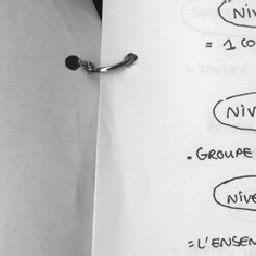 NIV
= 1 CO
NIV
. GROUPE
NIVE
= L'ENSEN